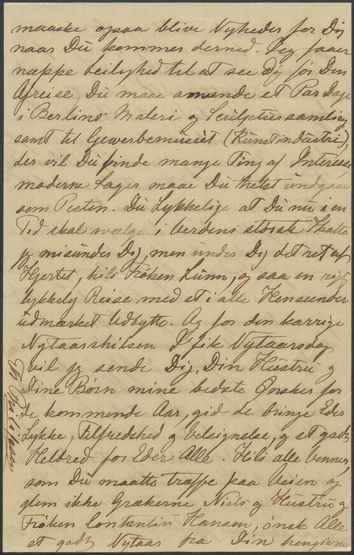 maaske ogsaa blive Nyheder for Dig
naar Du kommer derned. Jeg faaer
næppe Leilighed til at see Dig før Din
Afreise, Du maa anvende et Par Dage
i Berlins Maleri og Sculptursamling
samt til Gewerbemuseet (Kunstindustrie)
der vil Du finde mange Ting af Interesse,
moderne Sager maae Du heelst undgaae
som Pesten. Du Lykkelige at Du nu i en
Tid skal vælge i Verdens største Skatte
jeg misunder Dig, men under Dig det ret af
Hjertet, hils Frøken Lunn, og saa en rigtig
lykkelig Reise med et i alle Henseender
udmærket Udbytte. Og for den
Nytaarshilsen I fik Nytaarsdag
vil jeg sende Dig, Din Hustru og
Dine Børn mine bedste Ønsker for
de kommende Aar, gid de bringe Eder
Lykke, Tilfredshed og Velsignelse, og et godt
Helbred for Eder Alle. Hils alle Venner,
som Du maatte træffe paa Veien og
glem ikke Grækerne Niels og Hustru og
Frøken Constantin Hansen, ønsk Alle
et godt Nytaar fra Din hengivne